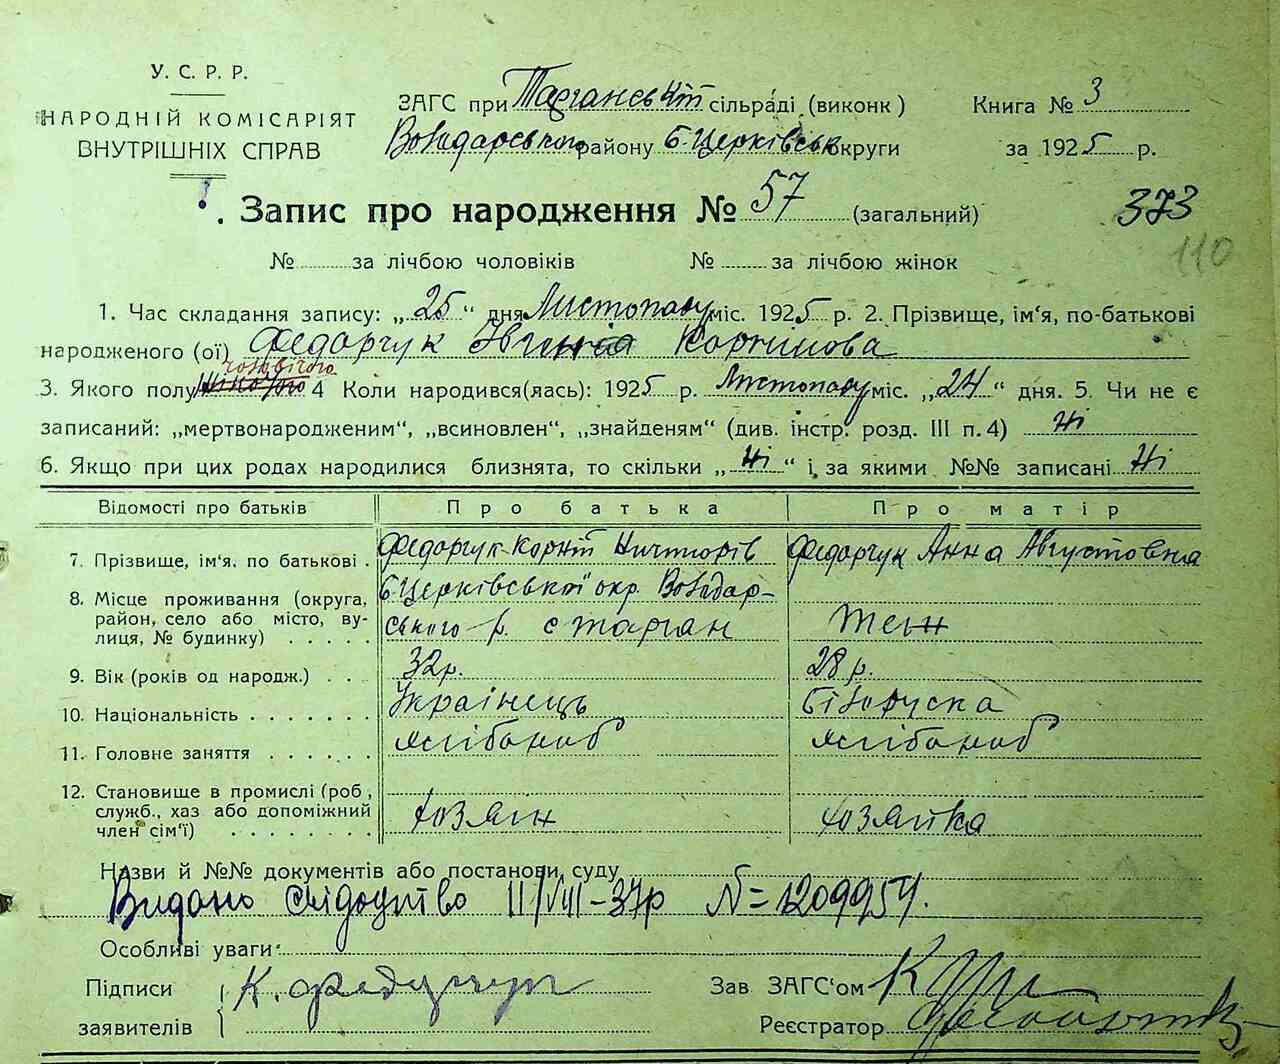 У. С. Р. Р.
НАРОДНІЙ КОМІСАРІЯТ
ВНУТРІШНІХ СПРАВ
ЗАГС при Тарганській сільраді (виконк)
Володарського району Б-Церківськ округи
Книга № 3
за 1925 р.
Запис про народження № 57 (загальний)
373
110
№ за лічбою чоловіків № за лічбою жінок
1. Час складання запису: „25“ дня Листопаду міс. 1925 р. 2. Прізвище, ім'я, по-батькові
народженого (ої) Федорчук Корнійова
чоловічого
3. Якого полу жіночого 4 Коли народився(лась): 1925 р. Листопаду міс. „24“ дня. 5. Чи не є
записаний: „мертвонародженим“, „всиновлен“, „знайденям“ (див. інстр. розд. III п. 4) Ні
6. Якщо при цих родах народилися близнята, то скільки „Ні“ і за якими №№ записані Ні
Відомості про батьків Про батька Про матір
7. Прізвище, ім'я, по батькові . Федорчук Корній Федорчук Анна Августовна
8. Місце проживання (округа, район, село або місто, вулиця, № будинку) . . . . . Б-Церківської окр. Володар-
ського р. с Тарган Теж
9. Вік (років од народж.) . . . 32 р. 28 р.
10. Національність . . . . . . . Українець Білоруска
11. Головне заняття . . . . . . Хлібороб Хлібороб
12. Становище в промислі (роб,
служб., хаз або допоміжний
член сім'ї) . . . . . . . . Хозяін Хозяйка
Назви й №№ документів або постанови суду
Видано Свідоцтво 11/VIII-37р № 1209954.
Особливі уваги:
Підписи К. Федурчук Зав ЗАГС'ом
заявителів Реєстратор